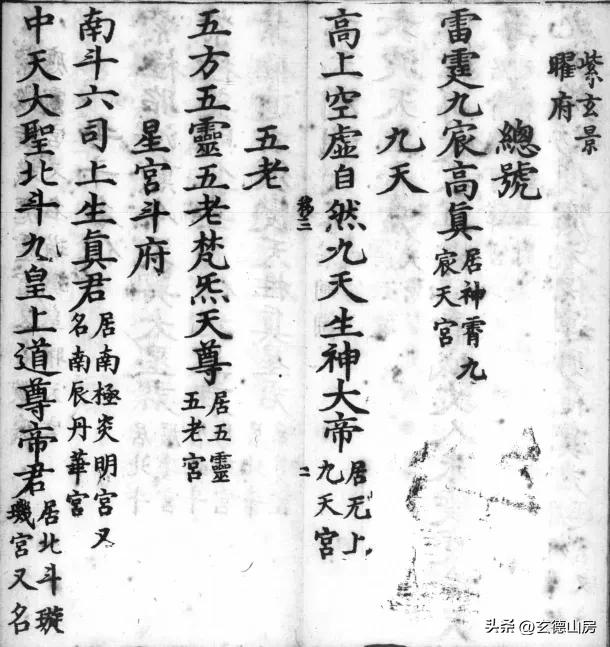 紫玄景
曜府
總號
雷霆九宸高眞居神霄九
宸天宮
九天
高上空虛自然九天生神大帝居无上
九天宮
五老
五方五靈五老梵炁天尊居五靈
五老宮
星宮斗府
南斗六司上生眞君居南極炎明宮又
名南辰丹華宮
中天大聖北斗九皇上道尊帝君居北斗璇
璣宮又名
头条@玄德山房